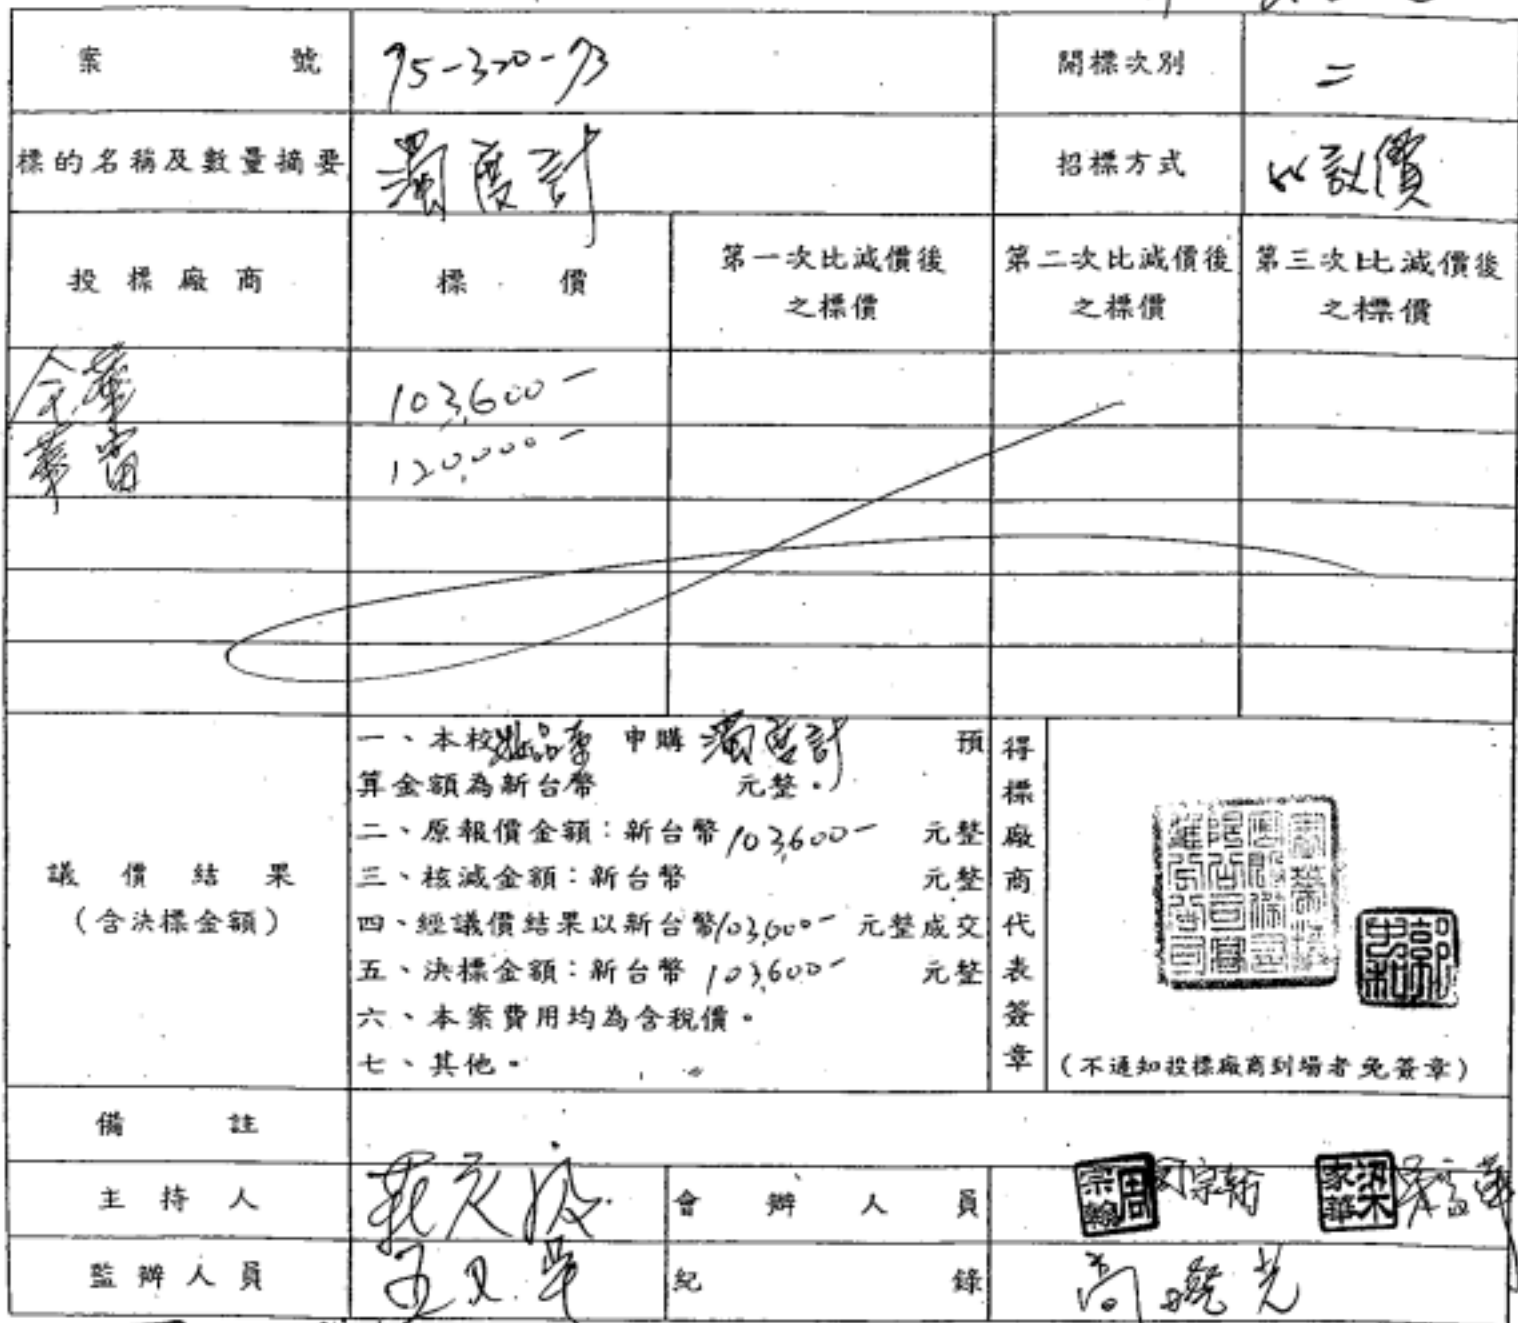 案號 95-320-93 開標次別 二
標的名稱及數量摘要 濁度計 招標方式 議價
投標廠商 標價 第一次比減價後之標價 第二次比減價後之標價 第三次比減價後之標價
全華 103,600-
華富 120,000-
議價結果
(含決標金額)
一、本校 申購 濁度計 預
算金額為新台幣 元整。
二、原報價金額：新台幣 103,600- 元整
三、核減金額：新台幣 元整
四、經議價結果以新台幣 103,600- 元整成交
五、決標金額：新台幣 103,600- 元整
六、本案費用均為含稅價。
七、其他。
得標廠商代表簽章
(不通知投標廠商到場者免簽章)
備註
主持人 會辦人員 周宗翰 周宗翰 梁家華
監辦人員 紀錄